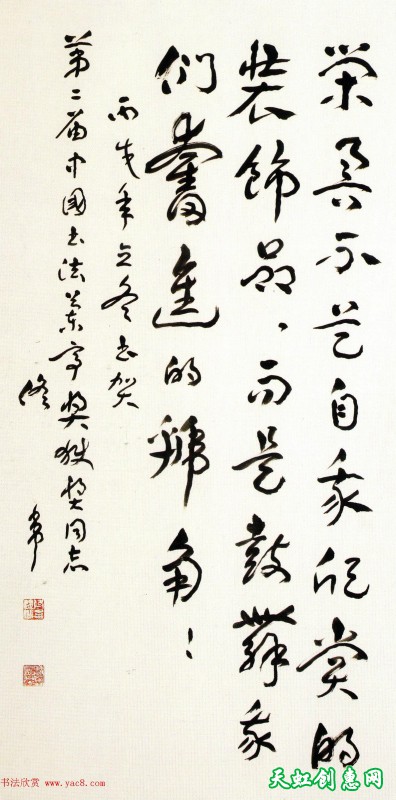 荣誉不是自我欣赏的
装飾品、而是鼓舞我
们奮進的號角！
丙戌年立冬书贺
第二届中国书法兰亭奖获奖同志
佟韦
书法欣赏 www.yac8.com
天虹创惠网